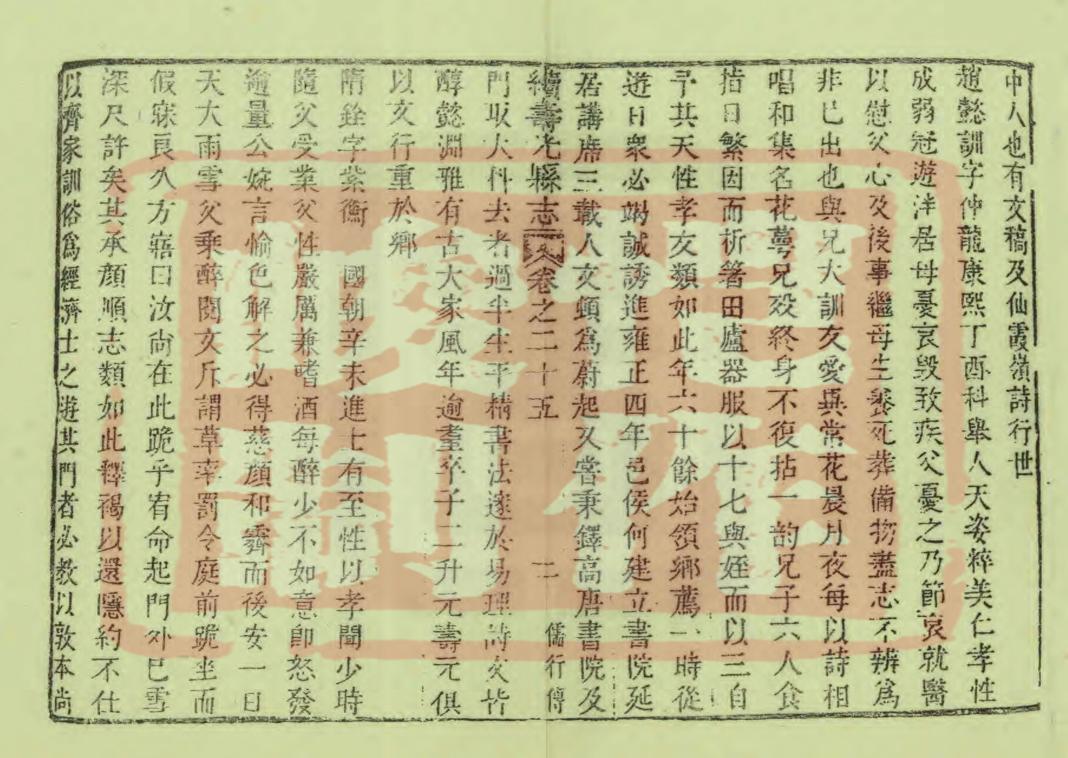 中人也有文稿及仙霞嶺詩行世
趙懿訓字仲龍康熙丁酉科舉人天姿粹美仁孝性
成弱冠遊泮居母憂哀毀致疾父憂之乃節哀就醫
以慰父心及後事繼母生養死葬備物盡志不辨為
非已出也與兄大訓友愛異常花晨月夜每以詩相
唱和集名花萼兄歿終身不復拈一韵兄子六人食
指日繁因而析箸田廬器服以十七與姪而以三自
予其天性孝友類如此年六十餘始領鄉薦一時從
遊日衆必竭誠誘進雍正四年邑侯何建立書院延
居講席三載人文頓為蔚起又嘗秉鐸高唐書院及
續壽光縣志 卷之二十五 二 儒行傳
門取大科去者過半生平精書法邃於易理詩文皆
醇懿淵雅有古大家風年逾耋卒子二升元壽元俱
以文行重於鄉
隋銓字紫衡 國朝辛未進士有至性以孝聞少時
隨父受業父性嚴厲兼嗜酒每醉少不如意即怒發
逾量公婉言愉色解之必得慈顏和霽而後安一日
天大雨雪父乘醉閱文斥謂草率罰令庭前跪坐而
假寐良久方寤曰汝尚在此跪乎宥命起門外已雪
深尺許矣其承顏順志類如此釋褐以還隱約不仕
以齊家訓俗為經濟士之遊其門者必教以敦本尚